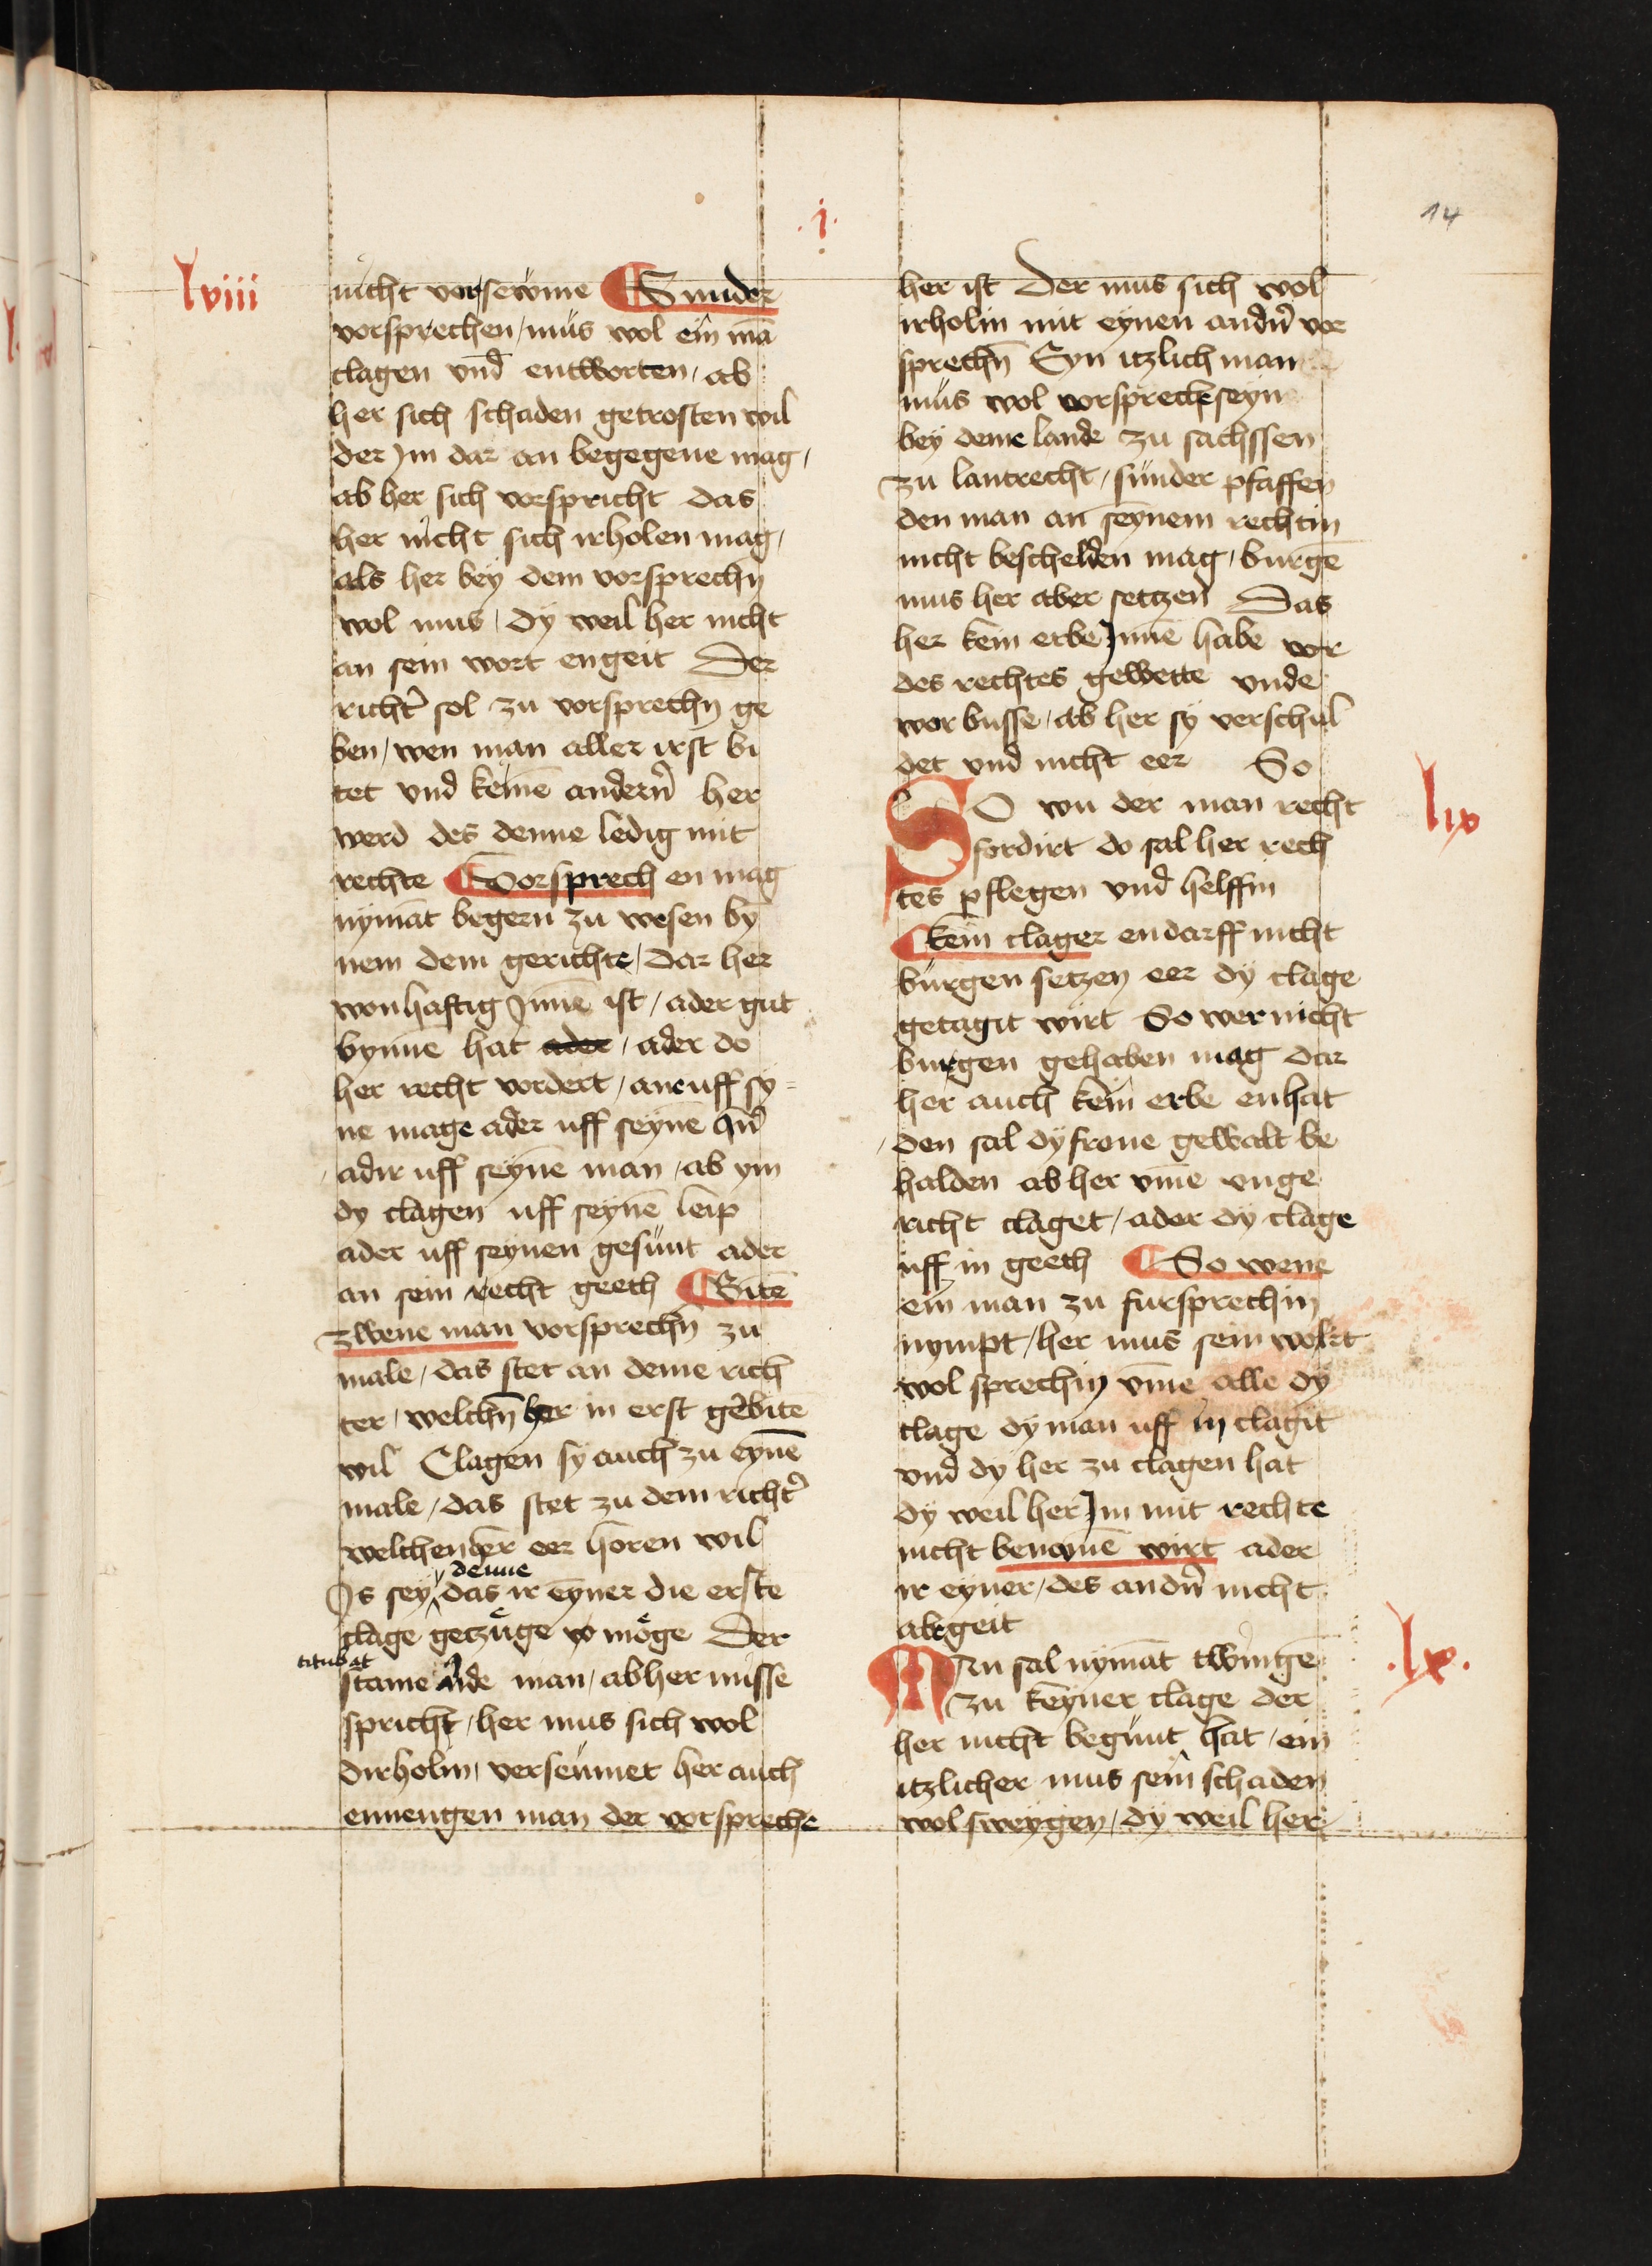 .i.
14
lviii
nicht vorsewme Sunder
vorsprechen / mus wol ein mā
clagen vnd entworten / ab
her sich schaden getrosten wil
der Im dar an begegene mag /
ab her sich vorspricht das
her nicht sich irholen mag /
als her bey dem vorsprechn
wol mus / dy weil her nicht
an sein wort engeit Der
richt' sol zu vorsprechn ge
ben / wen man aller irst bi
tet vnd keinē andern her
werd des denne ledig mit
rechte Vorsprech en mag
nymāt begern zu wesen by
nem dem gerichte / dar her
wonhaftig Inne ist / ader gut
bynne hat ader / ader do
her recht vordert / ane uff sy=
ne mage ader uff seynē hn̄
adir uff seynē man / ab ym
dy clagen uff seynē leip
ader uff seynen gesunt ader
an sein recht geeth Bitē
zwene man vorsprechn zu
male / das stet an deme rich
ter / welchn̄ her in erst gebite
wil Clagen sy auch zu eynē
male / das stet zu dem richt'
welchen her eer horen wil
denne
Is sey das ir eyner die erste
clage getzuge mŏge Der
titubat
stame nde man / ab her misse
spricht / her mus sich wol
dirholin / verseumet her auch
ennengen man der vorspreche
her ist Der mus sich wol
irholin mit eynen andn̄ vor
sprechn̄ Eyn itzlich man
mus wol vorsprech seyn
bey deme lande zu sachssen
zu lantrecht / sunder pfaffen
den man an seynem rechtin
nicht beschelden mag / burgē
mus her aber setczen Das
her kein erbe Inne habe vor
des rechtes gewette vnde
vor busse / ab her sy verschul
det vnd nicht eer So
lix
SO wu der man recht
fordirt do sal her rech
tes pflegen vnd helffin
kein clager endarff nicht
burgen setzen eer dy clage
getagit wirt So wer nicht
burgen gehaben mag dar
her auch kein erbe enhat
den sal dy frone gewalt be
halden ab her vme vnge
richt claget / ader dy clage
uff in geeth So wene
ein man zu fursprechin
nympt / her mus sein wort
wol sprechin vme alle dy
clage dy man uff in clagit
vnd dy her zu clagen hat
dy weil her Im mit rechte
nicht benomē wirt ader
ir eyner / des andn̄ nicht
abegeit
.lx.
Man sal nymāt twingē
zu keyner clage der
her nicht begunt hat / ein
itzlicher mus sein schaden
wol sweygen / dy weil her